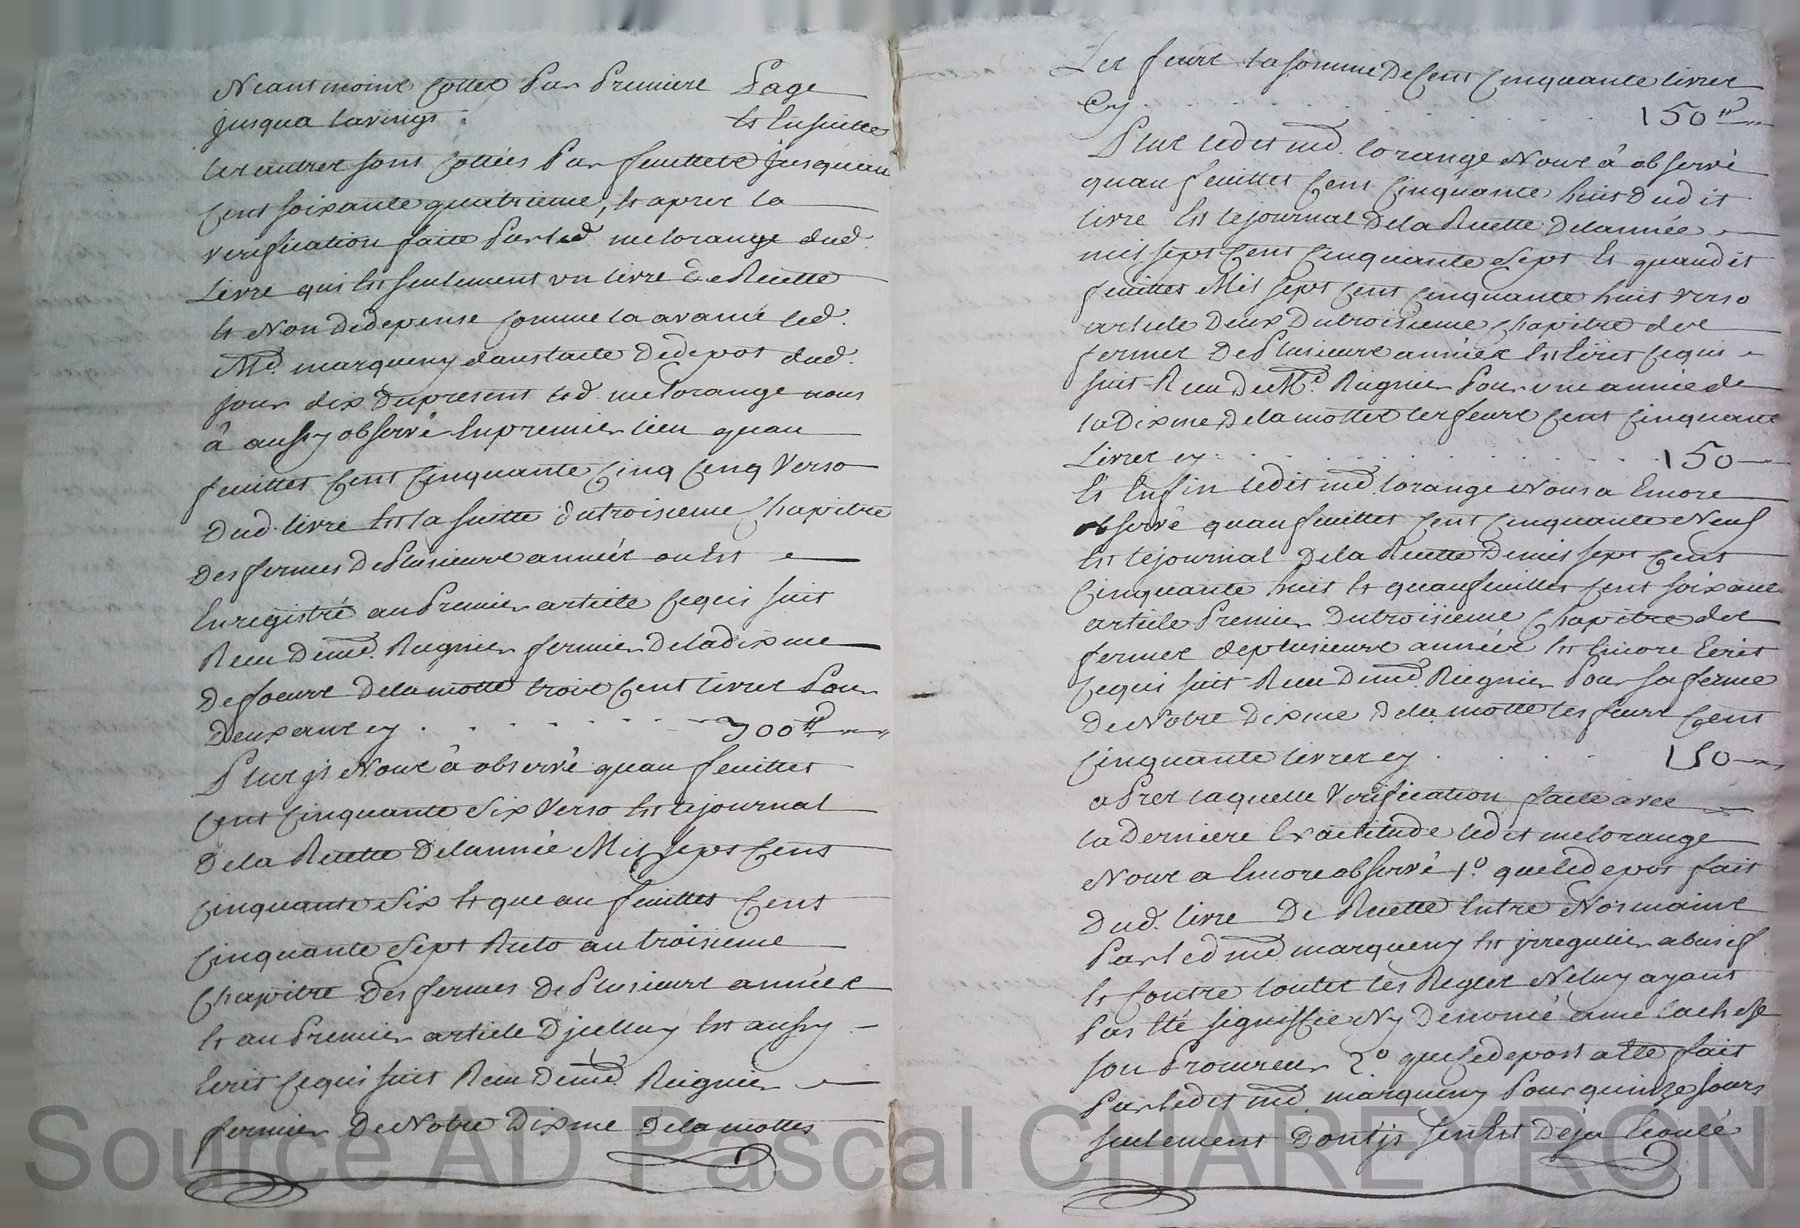 Neantmoins Cottée Par Premiere Page
jusqua la vingt Et Ensuitte
les autres sont Cottées Par feuillets Jusqu'au
Cent soixante quatrieme, Et apres la
verification faitte Par led. me lorange dud.
Livre qui Est seulement un livre de Recette
Et Non de depense Comme la avancé led.
Md. marqueny dans lacte de depot dud.
jour dix du present led. me lorange nous
à aussy observé En premier lieu quau
feuillet Cent Cinquante Cinq Cinq Verso
Dud. livre Est la suitte du troisieme Chapitre
Des fermes de Plusieurs année ou Est
Enregistré au Premier article Ce qui suit
Receu de md. Regnier fermier de la dixme
De foeurs de la motte trois Cent livres Pour
Deux ans cy . . . . . 300 lt
Plus js Nous à observé quau feuillet
Cent Cinquante Six Verso Est le journal
De la Recette de lannée Mil sept Cent
Cinquante Six Et que au feuillet Cent
Cinquante Sept Recto au troisieme
Chapitre Des fermes De Plusieurs année
Et au Premier article Djcelluy Est aussy
Ecrit Ce qui suit Receu de md. Regnier
fermier De Notre Dixme De la mottes
Les feurs la somme De Cent Cinquante livres
Cy . . . . . 150 lt
Plus ledit md. lorange Nous à observé
quau feuillet Cent Cinquante huit Dudit
livre Est le journal De la Recette De lannée
mil sept Cent Cinquante Sept Et quaudit
feuillet Mil sept Cent Cinquante huit verso
article Deux Du troisieme Chapitre des
fermes De Plusieurs années Est Ecrit Ce qui
suit Receu De Md. Regnier Pour une année de
la Dixme De la mottes les feurs Cent Cinquante
Livres cy . . . . . 150
Et Enfin ledit md. lorange Nous a Encore
observé quau feuillet Cent Cinquante Neuf
Est le journal De la Recette De mil sept Cent
Cinquante huit Et quau feuillet Cent soixante
article Premier Du troisieme Chapitre des
fermes de plusieurs année Est Encore Ecrit
Ce qui suit Receu De md. Regnier Pour sa ferme
De Notre Dixme De la motte les feurs Cent
Cinquante livres cy . . . . . 150
aPres laquelle Verification faite avec
la Derniere Exactitude ledit me lorange
Nous a Encore observé 1o. que le depot fait
Dud. livre De Recette Entre Nos mains
Par led md marqueny Est jrregulier abusif
Et Contre toutes les Regles Ne luy ayant
Pas Eté signiffié Ny Denoncé a me
son Procureur 2o que le depost a Eté fait
Par ledit md. marqueny Pour quinze Jours
seulement Dont js sen Est Déja Ecoulé
Source AD Pascal CHAREYRON